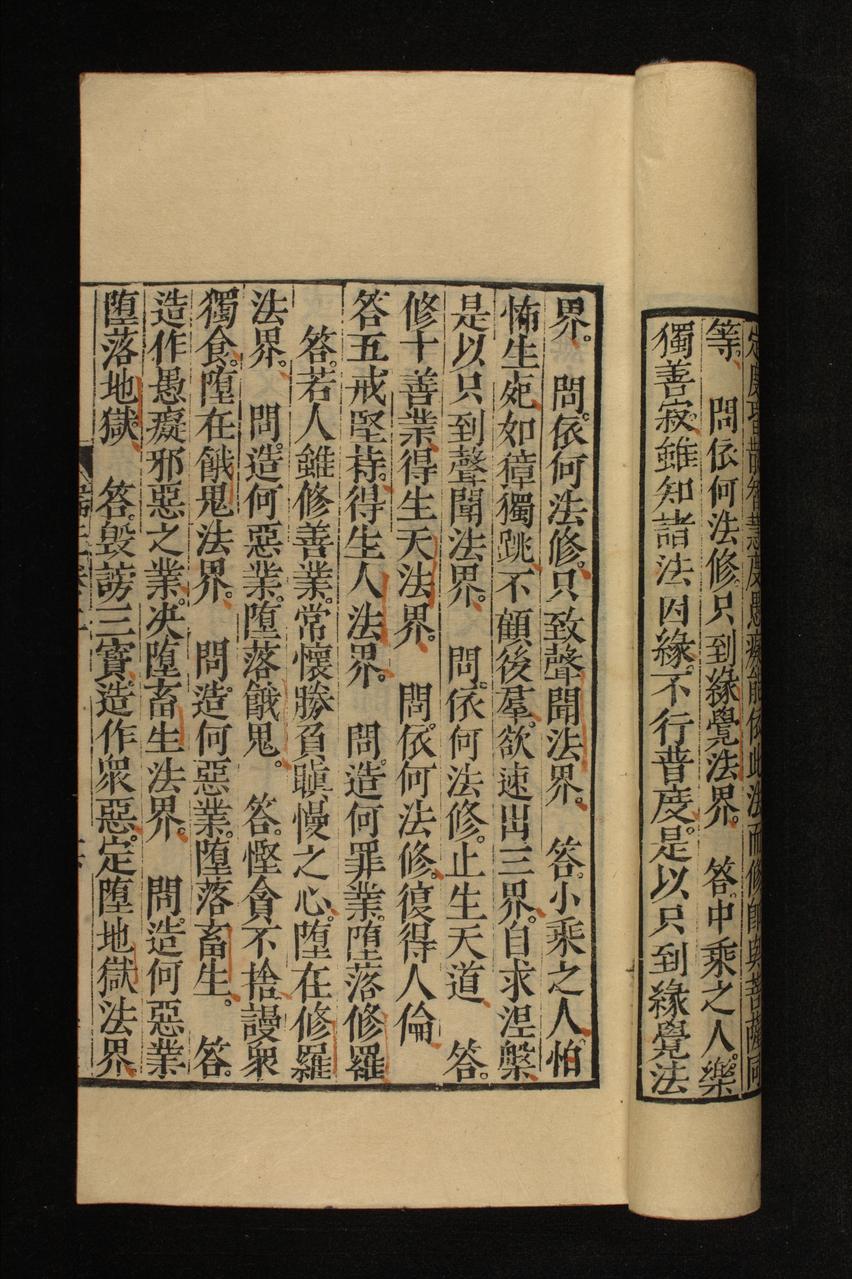 智慧度愚癡能依此法而修即與菩薩同
等。　問依何法修。只到緣覺法界。　答。中乘之人。樂
獨善寂。雖知諸法因緣。不行普度。是以只到緣覺法
界。　問。依何法修。只致聲聞法界。　答。小乘之人。怕
怖生死。如獐獨跳。不顧後羣。欲速出三界。自求涅槃
是以只到聲聞法界。　問。依何法修。止生天道　答。
修十善業。得生天法界。　問。依何法修。復得人倫
答五戒堅持。得生人法界。　問。造何罪業。墮落修羅
　答。若人雖修善業。常懷勝負瞋慢之心。墮在修羅
法界。　問。造何惡業。墮落餓鬼。　答。慳貪不捨謾衆
獨食。墮在餓鬼法界。　問。造何惡業。墮落畜生。　答。
造作愚癡邪惡之業。決墮畜生法界。　問。造何惡業
墮落地獄。　答。毀謗三寶。造作衆惡。定墮地獄法界